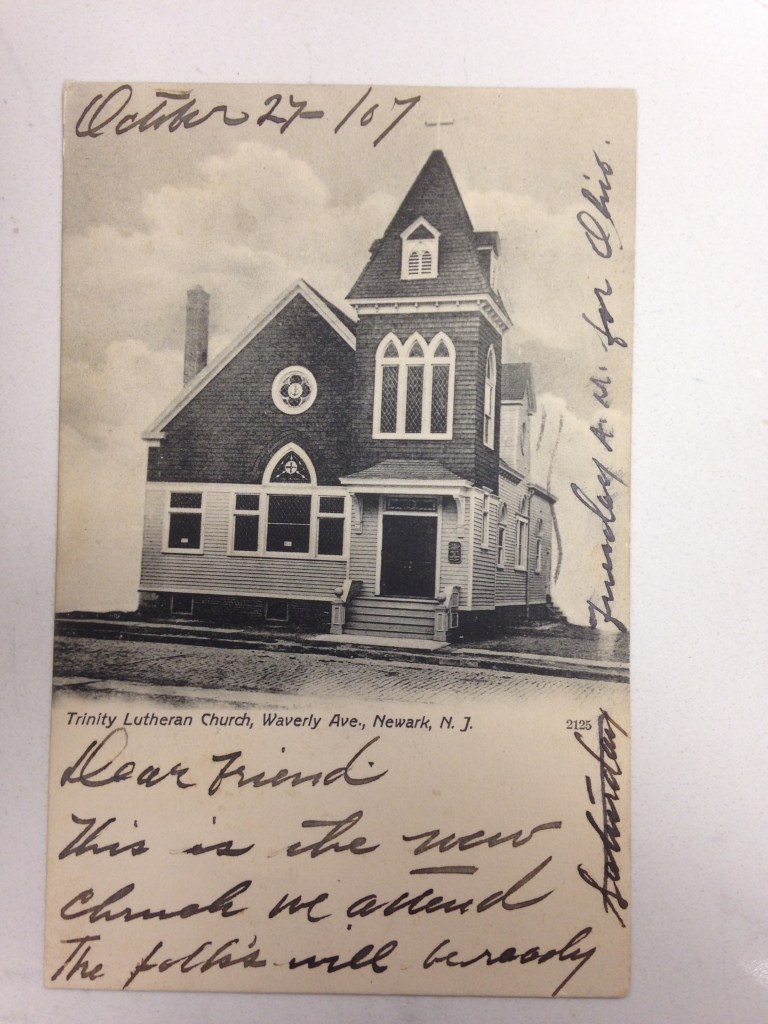 October 27- /07
Trinity Lutheran Church, Waverly Ave., Newark, N. J.
2125
Dear Friend
This is the new
chruch we attend
The folk's will be ready
Saturday
Tuesday A. M. for Ohio.